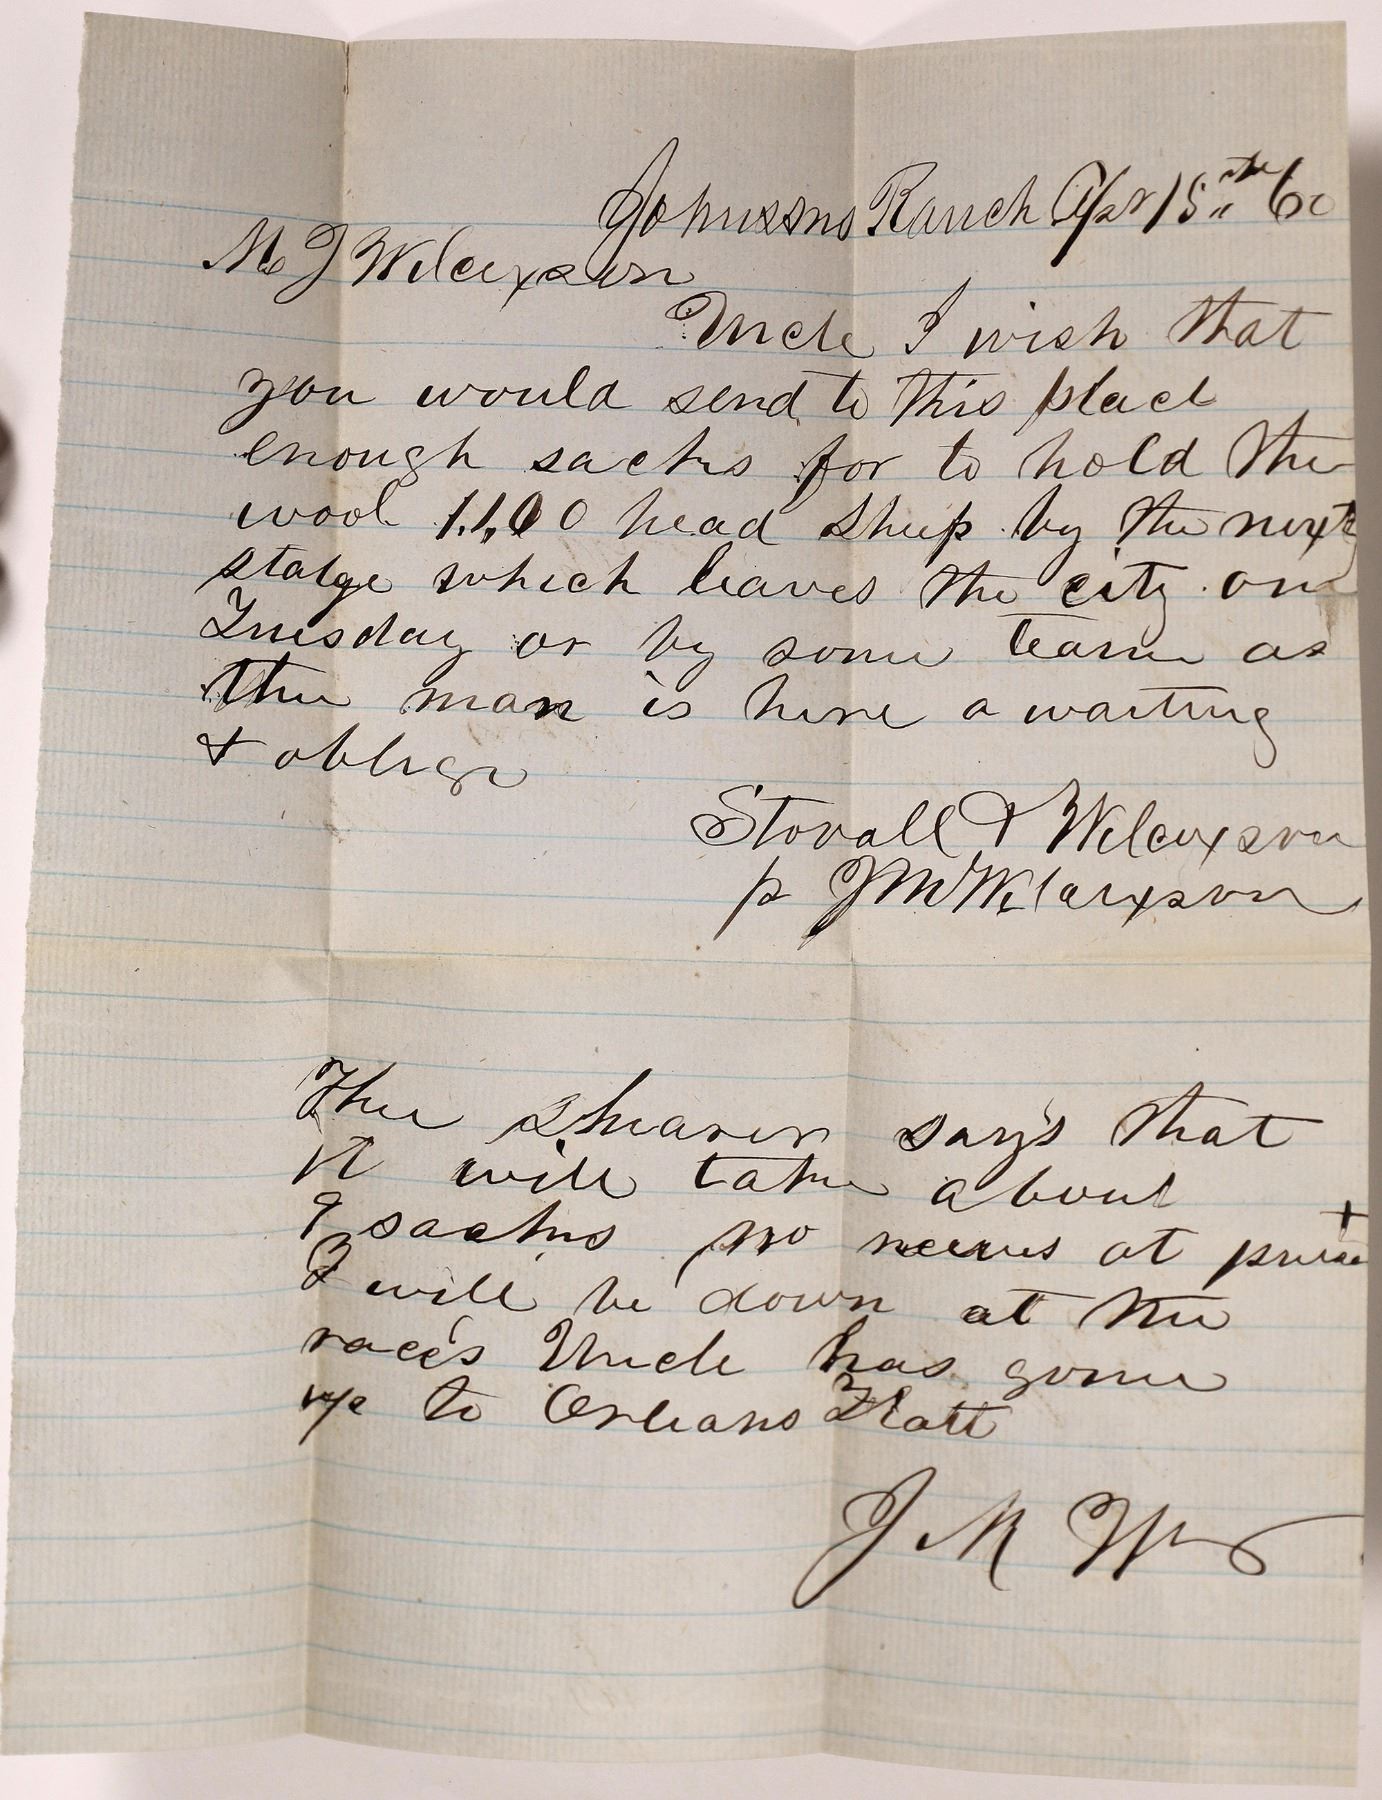 Johnsons Ranch Apr 15th 60
Mr J Wilcoxson
Uncle I wish that
you would send to this place
enough sacks for to hold the
wool 1100 head sheep by the next
stage which leaves the city on
Tuesday or by some team as
the man is here a waiting
& oblige
Stovall & Wilcoxson
p J M Wilcoxson
The shearer says that
it will take about
9 sacks no news at
I will be down at the
races Uncle has gone
up to Orleans Flatt
J M W